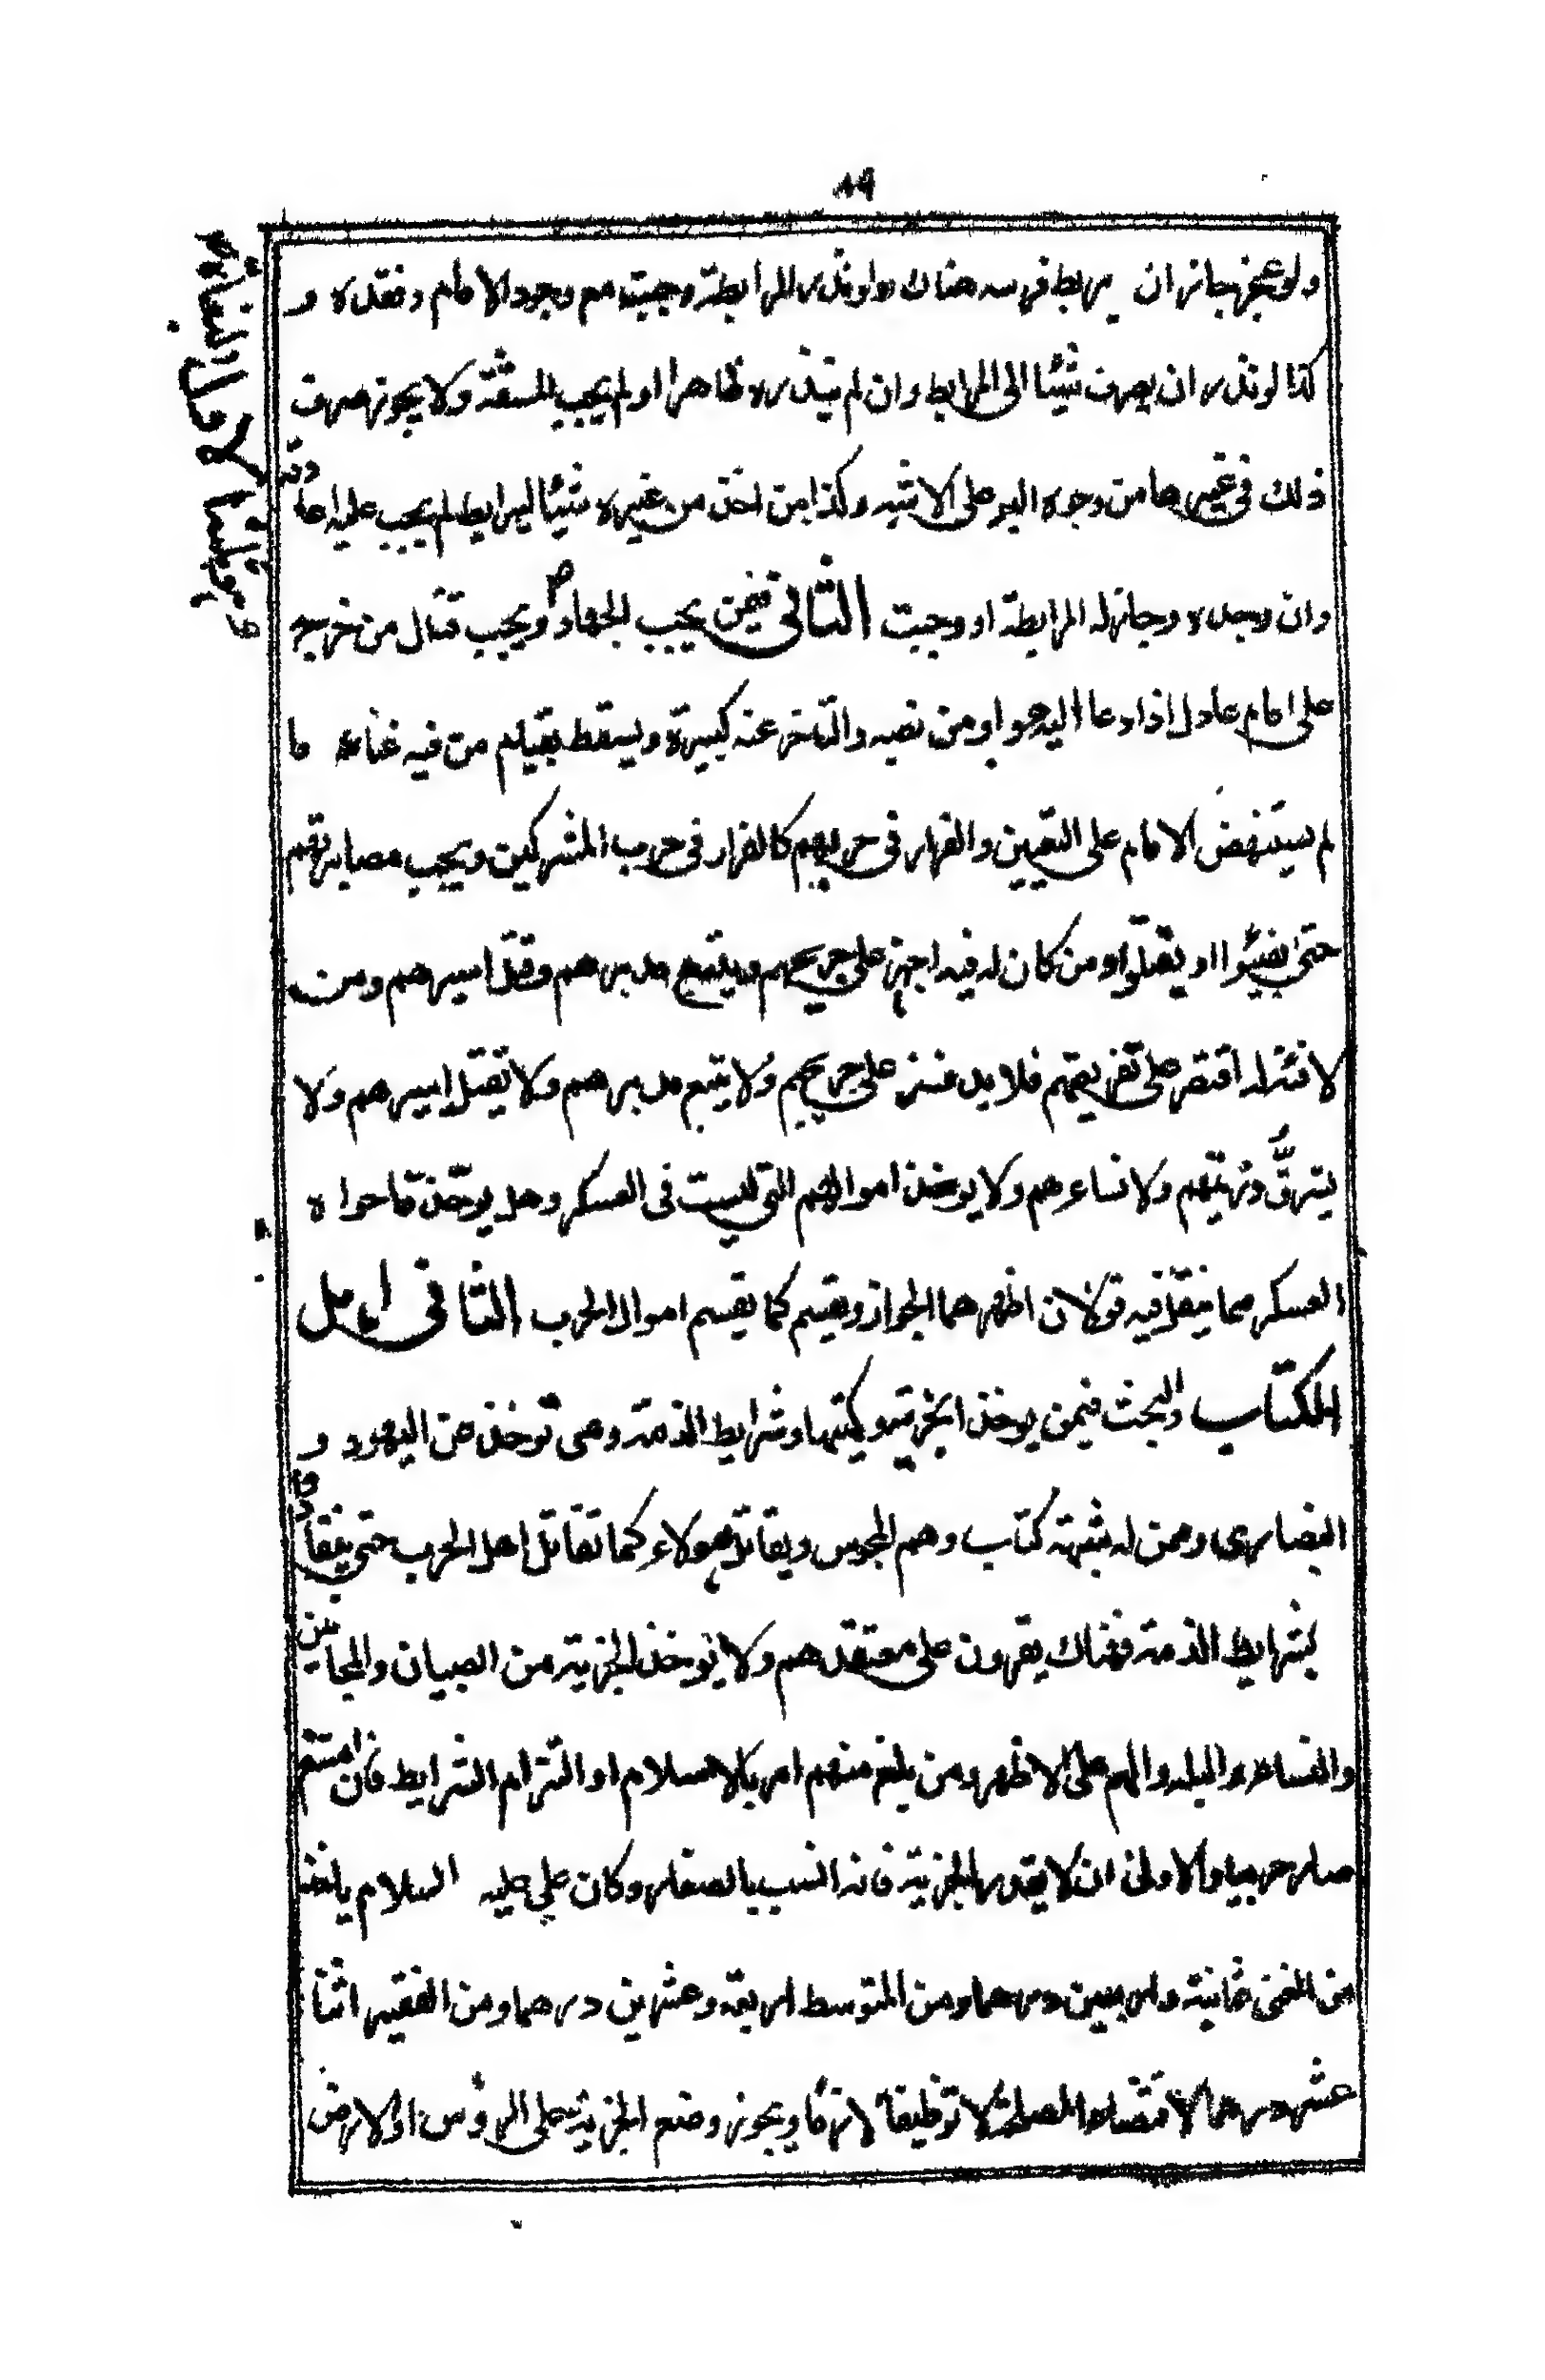 ٨٩
ولو عجز جاز ان يربط فرسه هناك ولو نذر المرابطة وجبت مع وجود الامام وفقده و
كذا لو نذر ان يصرف شيئا الى المرابط وان لم ينذره ظاهرا او لم يجب للسقة ولا يجوز صرف
ذلك فى غيرها من وجوه البر على الاشبه وكذا من اخذ من غيره شيئا ليرابط لم يجب عليه اعادته
وان وجده وجاز له المرابطة او وجبت الثانى فيمن يجب الجهاد ويجب قتال من خرج
على امام عادل اذا دعا اليه هو او من نصبه والتاخر عنه كبيرة ويسقط بقيام من فيه غناء ما
لم يستنهض الامام على التعيين والفرار فى حربهم كالفرار فى حرب المشركين ويجب مصابرتهم
حتى يفيئوا او يقتلوا ومن كان له فيه اجهز على جريحهم ويتبع مدبرهم وقتل اسيرهم ومن
لا فئة له اقتصر على تفريقهم فلا يدفف على جريحهم ولا يتبع مدبرهم ولا يقتل اسيرهم ولا
يسترق ذريتهم ولا نساءهم ولا يوخذ اموالهم التى ليست فى العسكر وهل يوخذ ما حواه
العسكر مما ينقل فيه قولان اظهرهما الجواز ويقسم كما يقسم اموال الحرب الثانى اهل
الكتاب والبحث فيمن يوخذ الجزية وكميتها وشرايط الذمة وهى توخذ من اليهود و
النصارى وممن له شبهة كتاب وهم المجوس ويقاتل هولاء كما تقاتل اهل الحرب حتى ينقادوا
بشرايط الذمة فهناك يقرون على معتقدهم ولا يوخذ الجزية من الصبيان والمجانين
والنساء والبله والهم على الاظهر ومن بلغ منهم امر بالاسلام او التزام الشرايط فان امتنع
صار حربيا والاولى ان لا يقدر الجزية فانه انسب بالصغار وكان على عليه السلام ياخذ
من الغنى ثمانية واربعين درهما ومن المتوسط اربعة وعشرين درهما ومن الفقير اثنا
عشر درهما لاقتضاء المصلحة لا توظيفا لازما ويجوز وضع الجزية على الروس او الارض